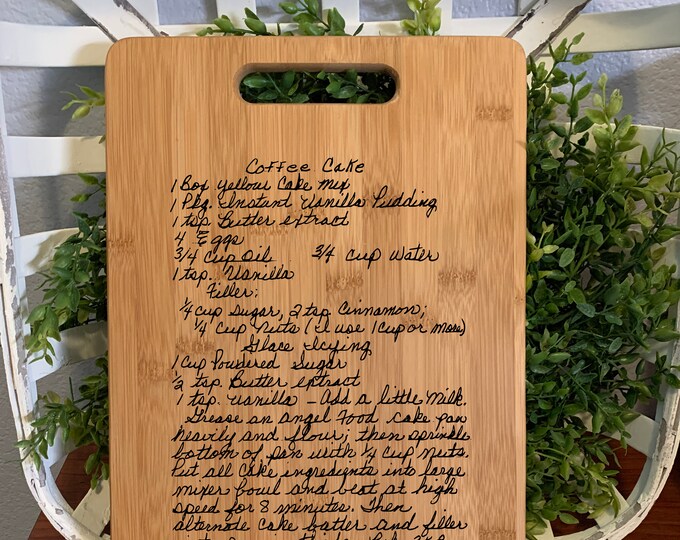 Coffee Cake
1 Box Yellow Cake Mix
1 Pkg. Instant Vanilla Pudding
1 tsp Butter extract
4 Eggs
3/4 cup Oil 3/4 cup Water
1 tsp. Vanilla
Filler:
1/4 cup Sugar, 2 tsp. Cinnamon;
1/4 cup Nuts (I use 1 cup or more)
Glace Icying
1 cup Powdered Sugar
1/2 tsp. Butter extract
1 tsp. Vanilla - Add a little Milk.
Grease an angel Food cake pan
heavily and flour; then sprinkle
bottom of pan with 1/4 cup nuts.
Put all cake ingredients into large
mixer bowl and beat at high
speed for 8 minutes. Then
alternate cake batter and filler